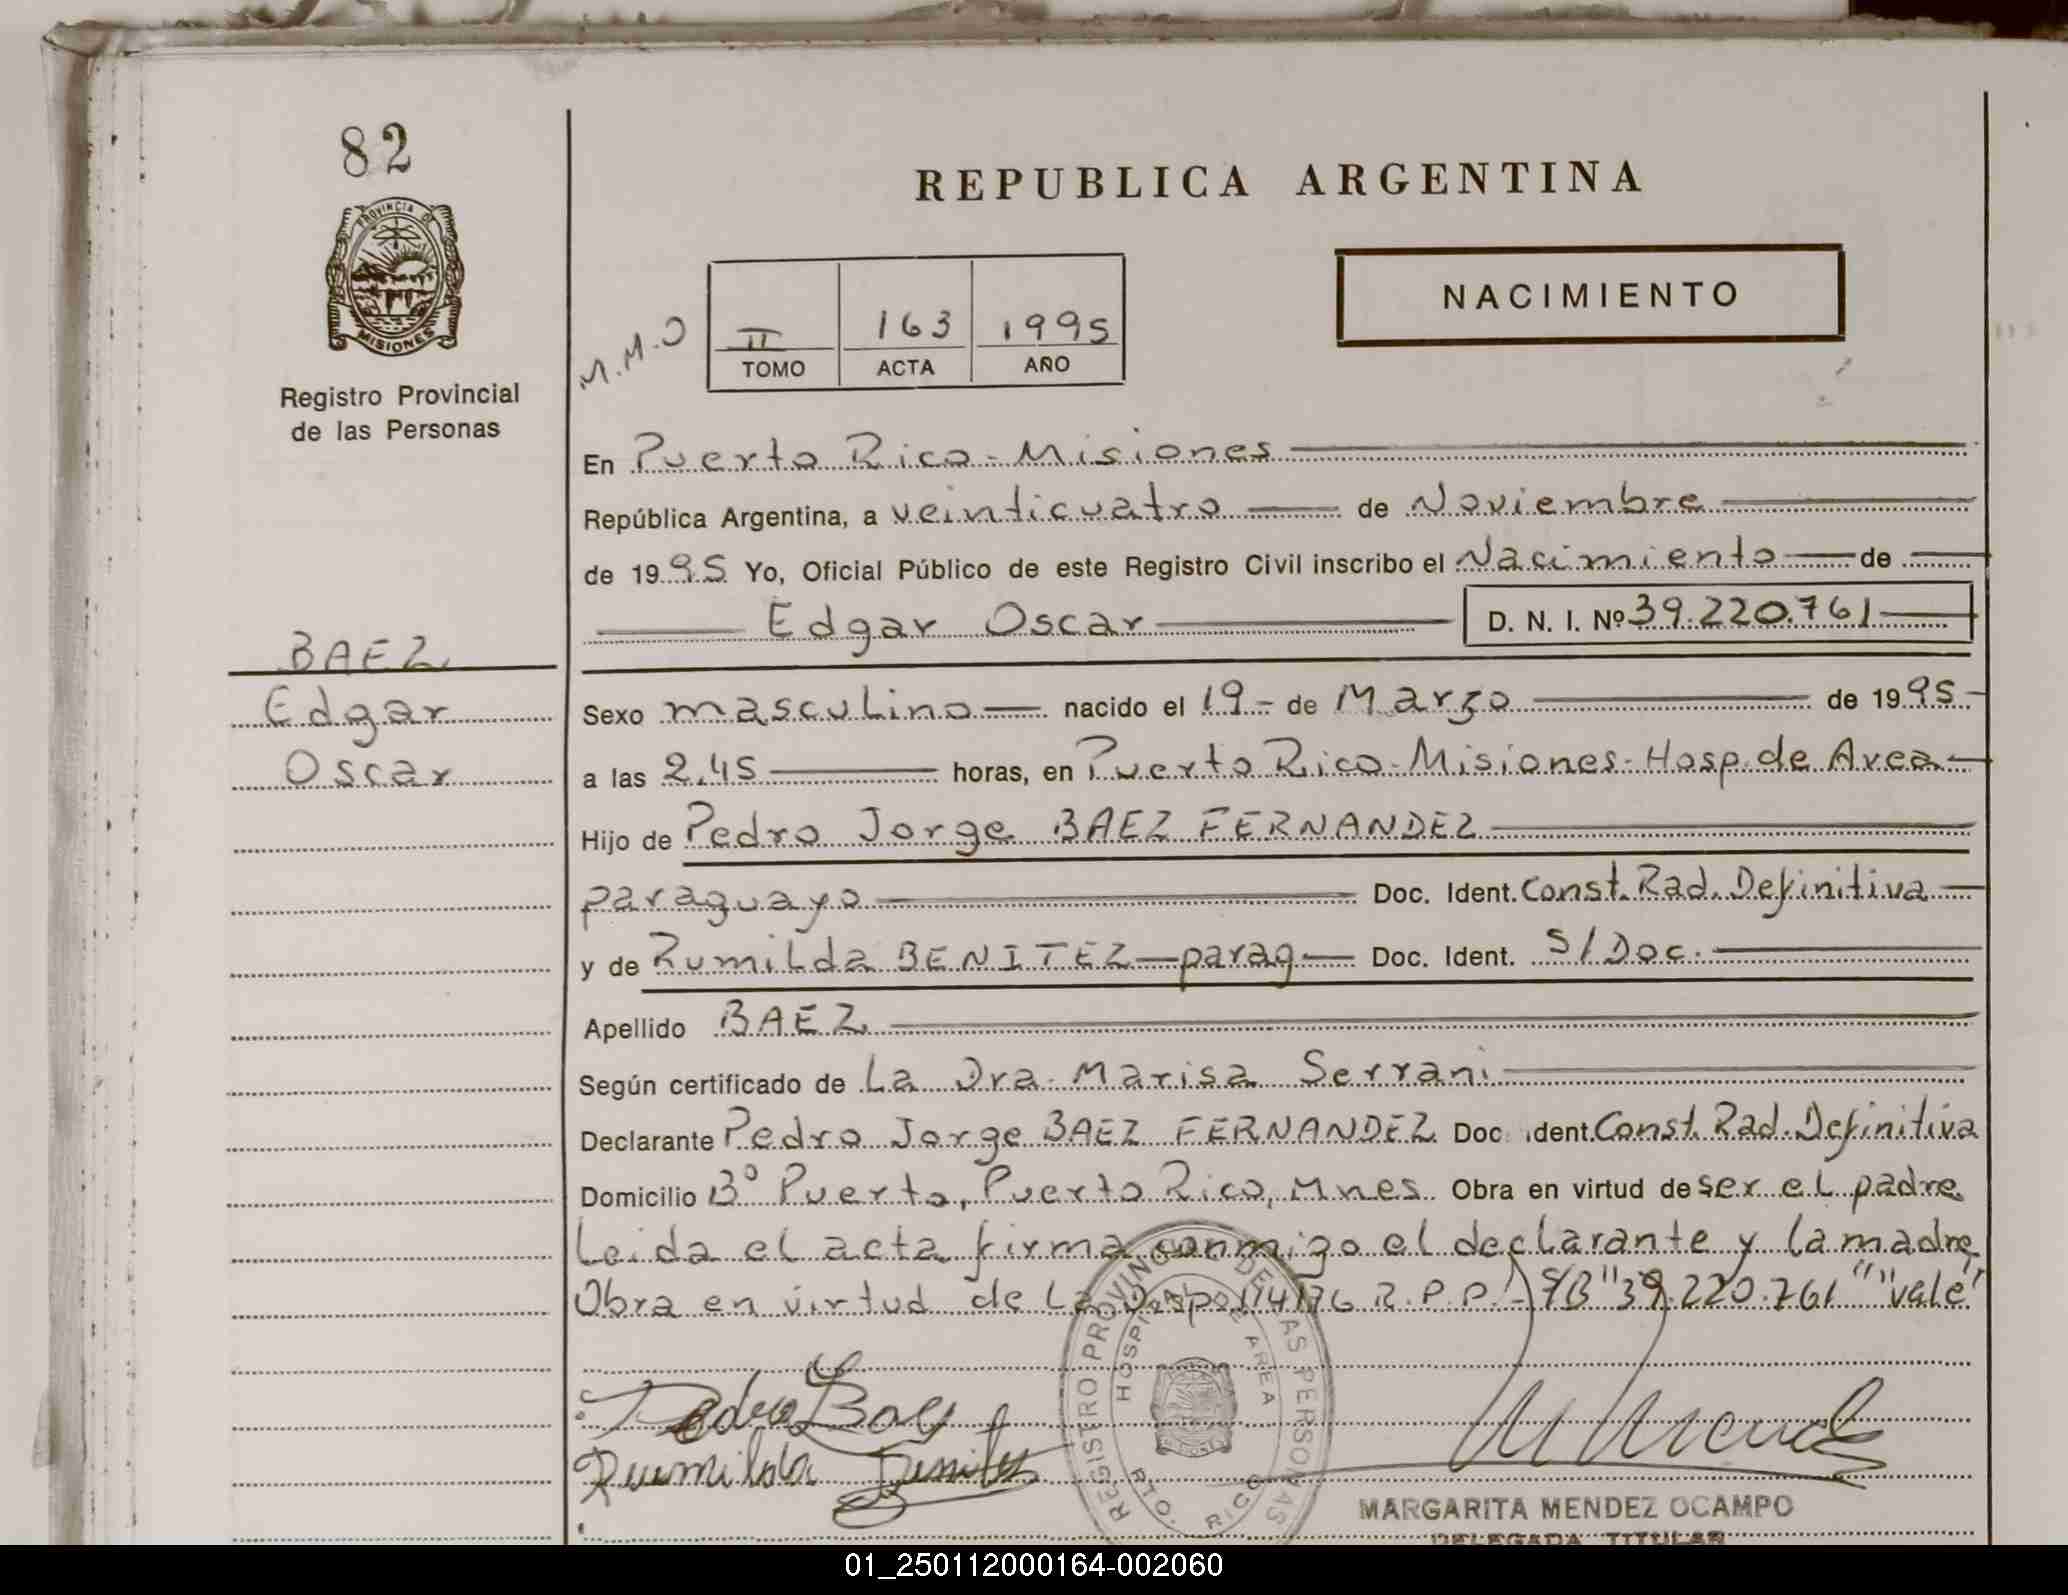 82
PROVINCIA DE
MISIONES
Registro Provincial
de las Personas
BAEZ
Edgar
Oscar
REPUBLICA ARGENTINA
NACIMIENTO
M.M.O
II 163 1995
TOMO ACTA AÑO
En Puerto Rico - Misiones
República Argentina, a veinticuatro de Noviembre
de 1995 Yo, Oficial Público de este Registro Civil inscribo el Nacimiento de
Edgar Oscar D. N. I. Nº 39.220.761
Sexo masculino nacido el 19 - de Marzo de 1995
a las 2.45 horas, en Puerto Rico - Misiones - Hosp. de Area
Hijo de Pedro Jorge BAEZ FERNANDEZ
paraguayo Doc. Ident. Const. Rad. Definitiva
y de Rumilda BENITEZ - parag - Doc. Ident. S/Doc.
Apellido BAEZ
Según certificado de La Dra. Marisa Serrani
Declarante Pedro Jorge BAEZ FERNANDEZ Doc ident. Const. Rad. Definitiva
Domicilio Bº Puerto, Puerto Rico, Mnes. Obra en virtud de ser el padre
Leida el acta firma conmigo el declarante y la madre
Obra en virtud de La Dispo 174/76 R.P.P. - S/B "39.220.761" "vale"
Pedro Baez
Rumilda Benitez
REGISTRO PROVINCIAL DE LAS PERSONAS
HOSPITAL DE AREA
PTO. RICO
M Mendez
MARGARITA MENDEZ OCAMPO
DELEGADA TITULAR
01_250112000164-002060